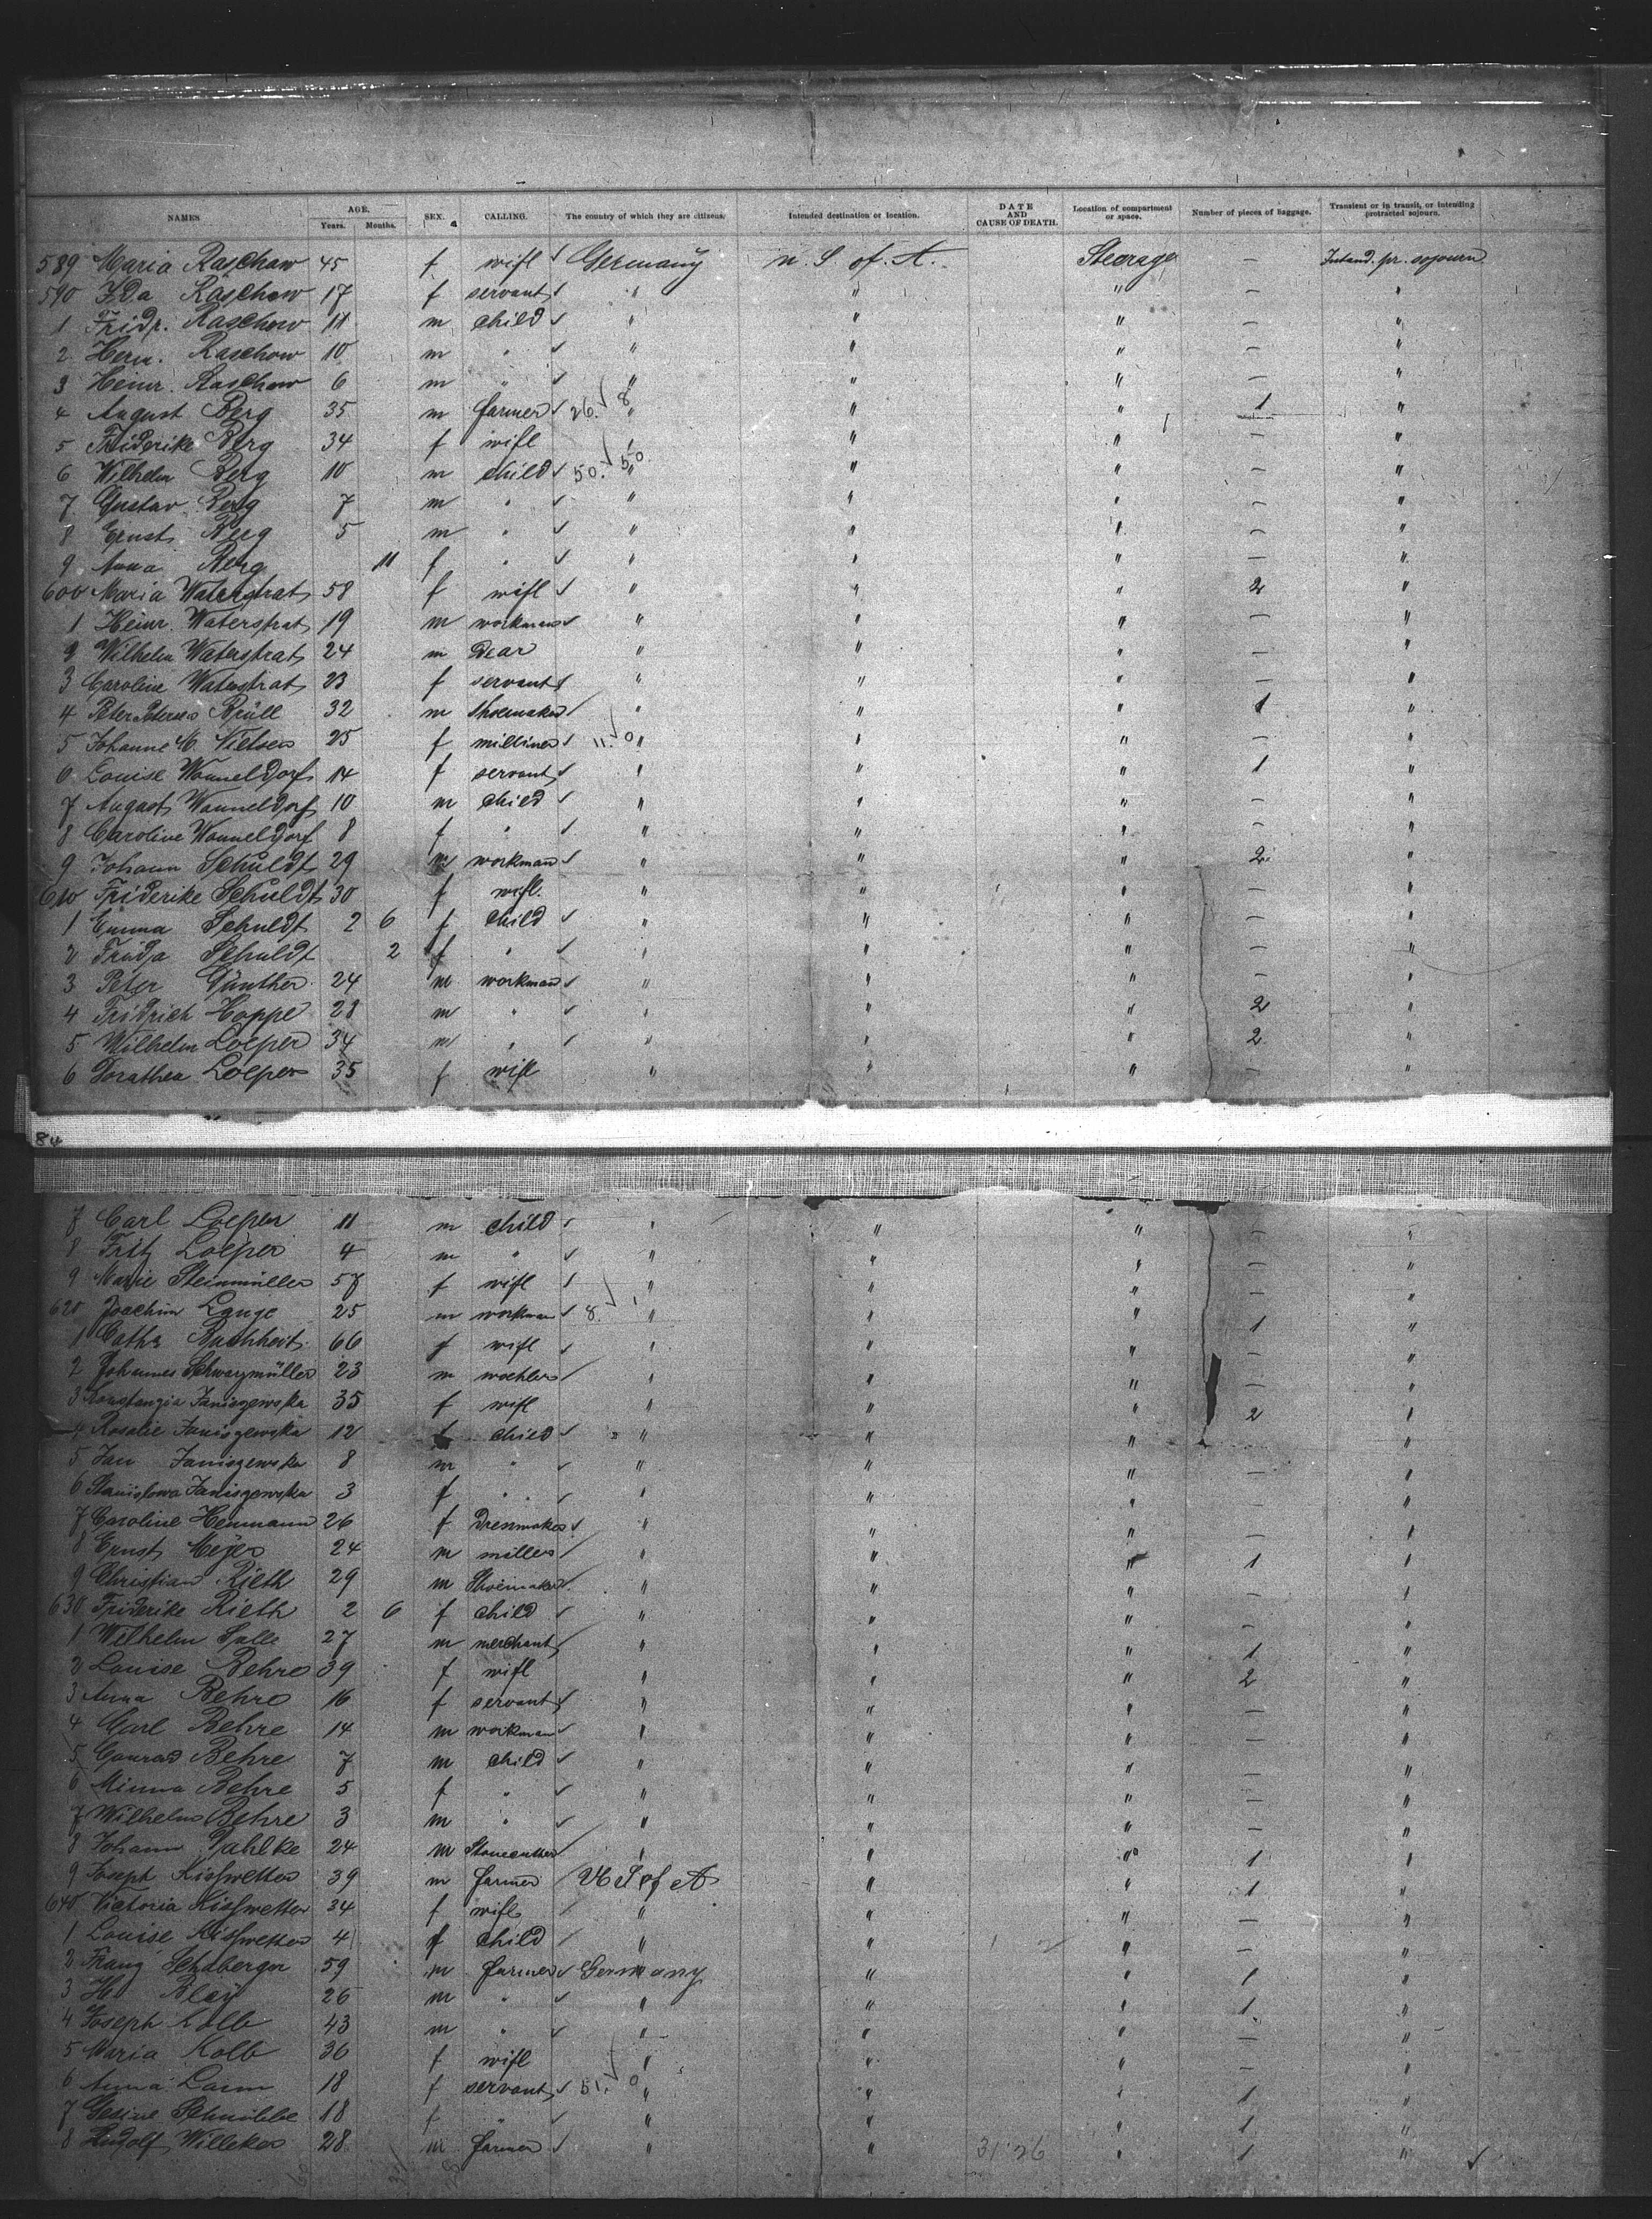 NAMES AGE. Years. Months. SEX. CALLING. The country of which they are citizens. Intended destination or location. DATE AND CAUSE OF DEATH. Location of compartment or space. Number of pieces of baggage. Transient or in transit, or intending protracted sojourn.
589 Maria Raschow 45 f wife Germany U. S. of. A. Steerage — Intend. pr. sojourn
590 Ida Raschow 17 f servant " " " — "
1 Fridr. Raschow 11 m child " " " — "
2 Herm. Raschow 10 m " " " " — "
3 Heinr. Raschow 6 m " " " " — "
4 August Berg 35 m farmer 26. 8 " " " 1 "
5 Friderike Berg 34 f wife " " " — "
6 Wilhelm Berg 10 m child 50. 50. " " " — "
7 Gustav Berg 7 m " " " " — "
8 Ernst Berg 5 m " " " " — "
9 Anna Berg 11 f " " " " — "
600 Maria Waterstrat 58 f wife " " " 2 "
1 Heinr. Waterstrat 19 m workman " " " — "
2 Wilhelm Waterstrat 24 m " " " — "
3 Caroline Waterstrat 23 f servant " " " — "
4 Peter Brüll 32 m shoemaker " " " 1 "
5 Johanne M. Nielsen 25 f milliner 11. 0 " " " — "
6 Louise Wonneldorf 14 f servant " " " 1 "
7 August Wonneldorf 10 m child " " " — "
8 Caroline Wonneldorf 8 f " " " " — "
9 Johann Schuldt 29 m workman " " " 2 "
610 Friderike Schuldt 30 f wife " " " — "
1 Emma Schuldt 2 6 f child " " " — "
2 Frida Schuldt 2 f " " " " — "
3 Peter Günther 24 m workman " " " — "
4 Fridrich Hoppe 28 m " " " " 2 "
5 Wilhelm Loeper 34 m " " " " 2 "
6 Dorathea Loeper 35 f wife " " " — "
84
7 Carl Loeper 11 m child " " " — "
8 Fritz Loeper 4 m " " " " — "
9 Marie Steinmüller 57 f wife " " " — "
620 Joachim Lange 25 m workman 8. 1 " " " 1 "
1 Cathr. 66 f wife " " " — "
2 Johannes Schwarzmüller 23 m " " " — "
3 Konstanzia Janiszewska 35 f wife " " " 2 "
4 Rosalie Janiszewska 12 f child " " " — "
5 Jan Janiszewska 8 m " " " " — "
6 Stanislowa Janiszewska 3 f " " " " — "
7 Caroline Heumann 26 f Dresmaker " " " — "
8 Ernst Meyer 24 m miller " " " 1 "
9 Christian Rieth 29 m Shoemaker " " " — "
630 Friderike Rieth 2 6 f child " " " — "
1 Wilhelm 27 m merchant " " " 1 "
2 Louise Behre 39 f wife " " " 2 "
3 Anna Behre 16 f servant " " " — "
4 Carl Behre 14 m workman " " " — "
5 Conrad Behre 7 m child " " " — "
6 Minna Behre 5 f " " " " — "
7 Wilhelm Behre 3 m " " " " — "
8 Johann Pahlke 24 m Stonecutter " " " 1 "
9 Joseph Kisswetter 39 m farmer U S of A " " 1 "
640 Victoria Kisswetter 34 f wife " " " — "
1 Louise Kisswetter 4 f child " " " — "
2 Franz 59 m farmer Germany " " 1 "
3 H. Bley 26 m " " " " 1 "
4 Joseph Kolb 43 m " " " " — "
5 Maria Kolb 36 f wife " " " — "
6 Anna 18 f servant 51. 0 " " " 1 "
7 Gesine 18 f " " " " 1 "
8 Rudolf Willeker 28 m farmer " " 31 26 " 1 "